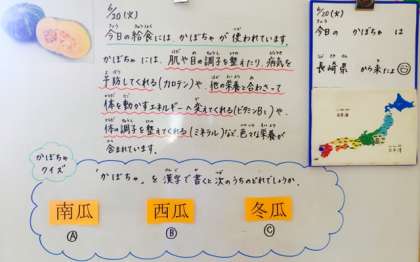 6/20(火)
今日の給食には かぼちゃが 使われています。
かぼちゃには、肌や目の調子を整えたり、病気を
予防してくれる(カロテン)や、他の栄養と合わさって
体を動かすエネルギーへ変えてくれる(ビタミンB₁)や、
体の調子を整えてくれる(ミネラル)など 色々な栄養が
含まれています。
かぼちゃ
クイズ
「かぼちゃ」を漢字で書くと次のうちのどれでしょうか。
南瓜
西瓜
冬瓜
Ⓐ
Ⓑ
Ⓒ
6/20(火)
今日の かぼちゃ は
長崎県 から来たよ